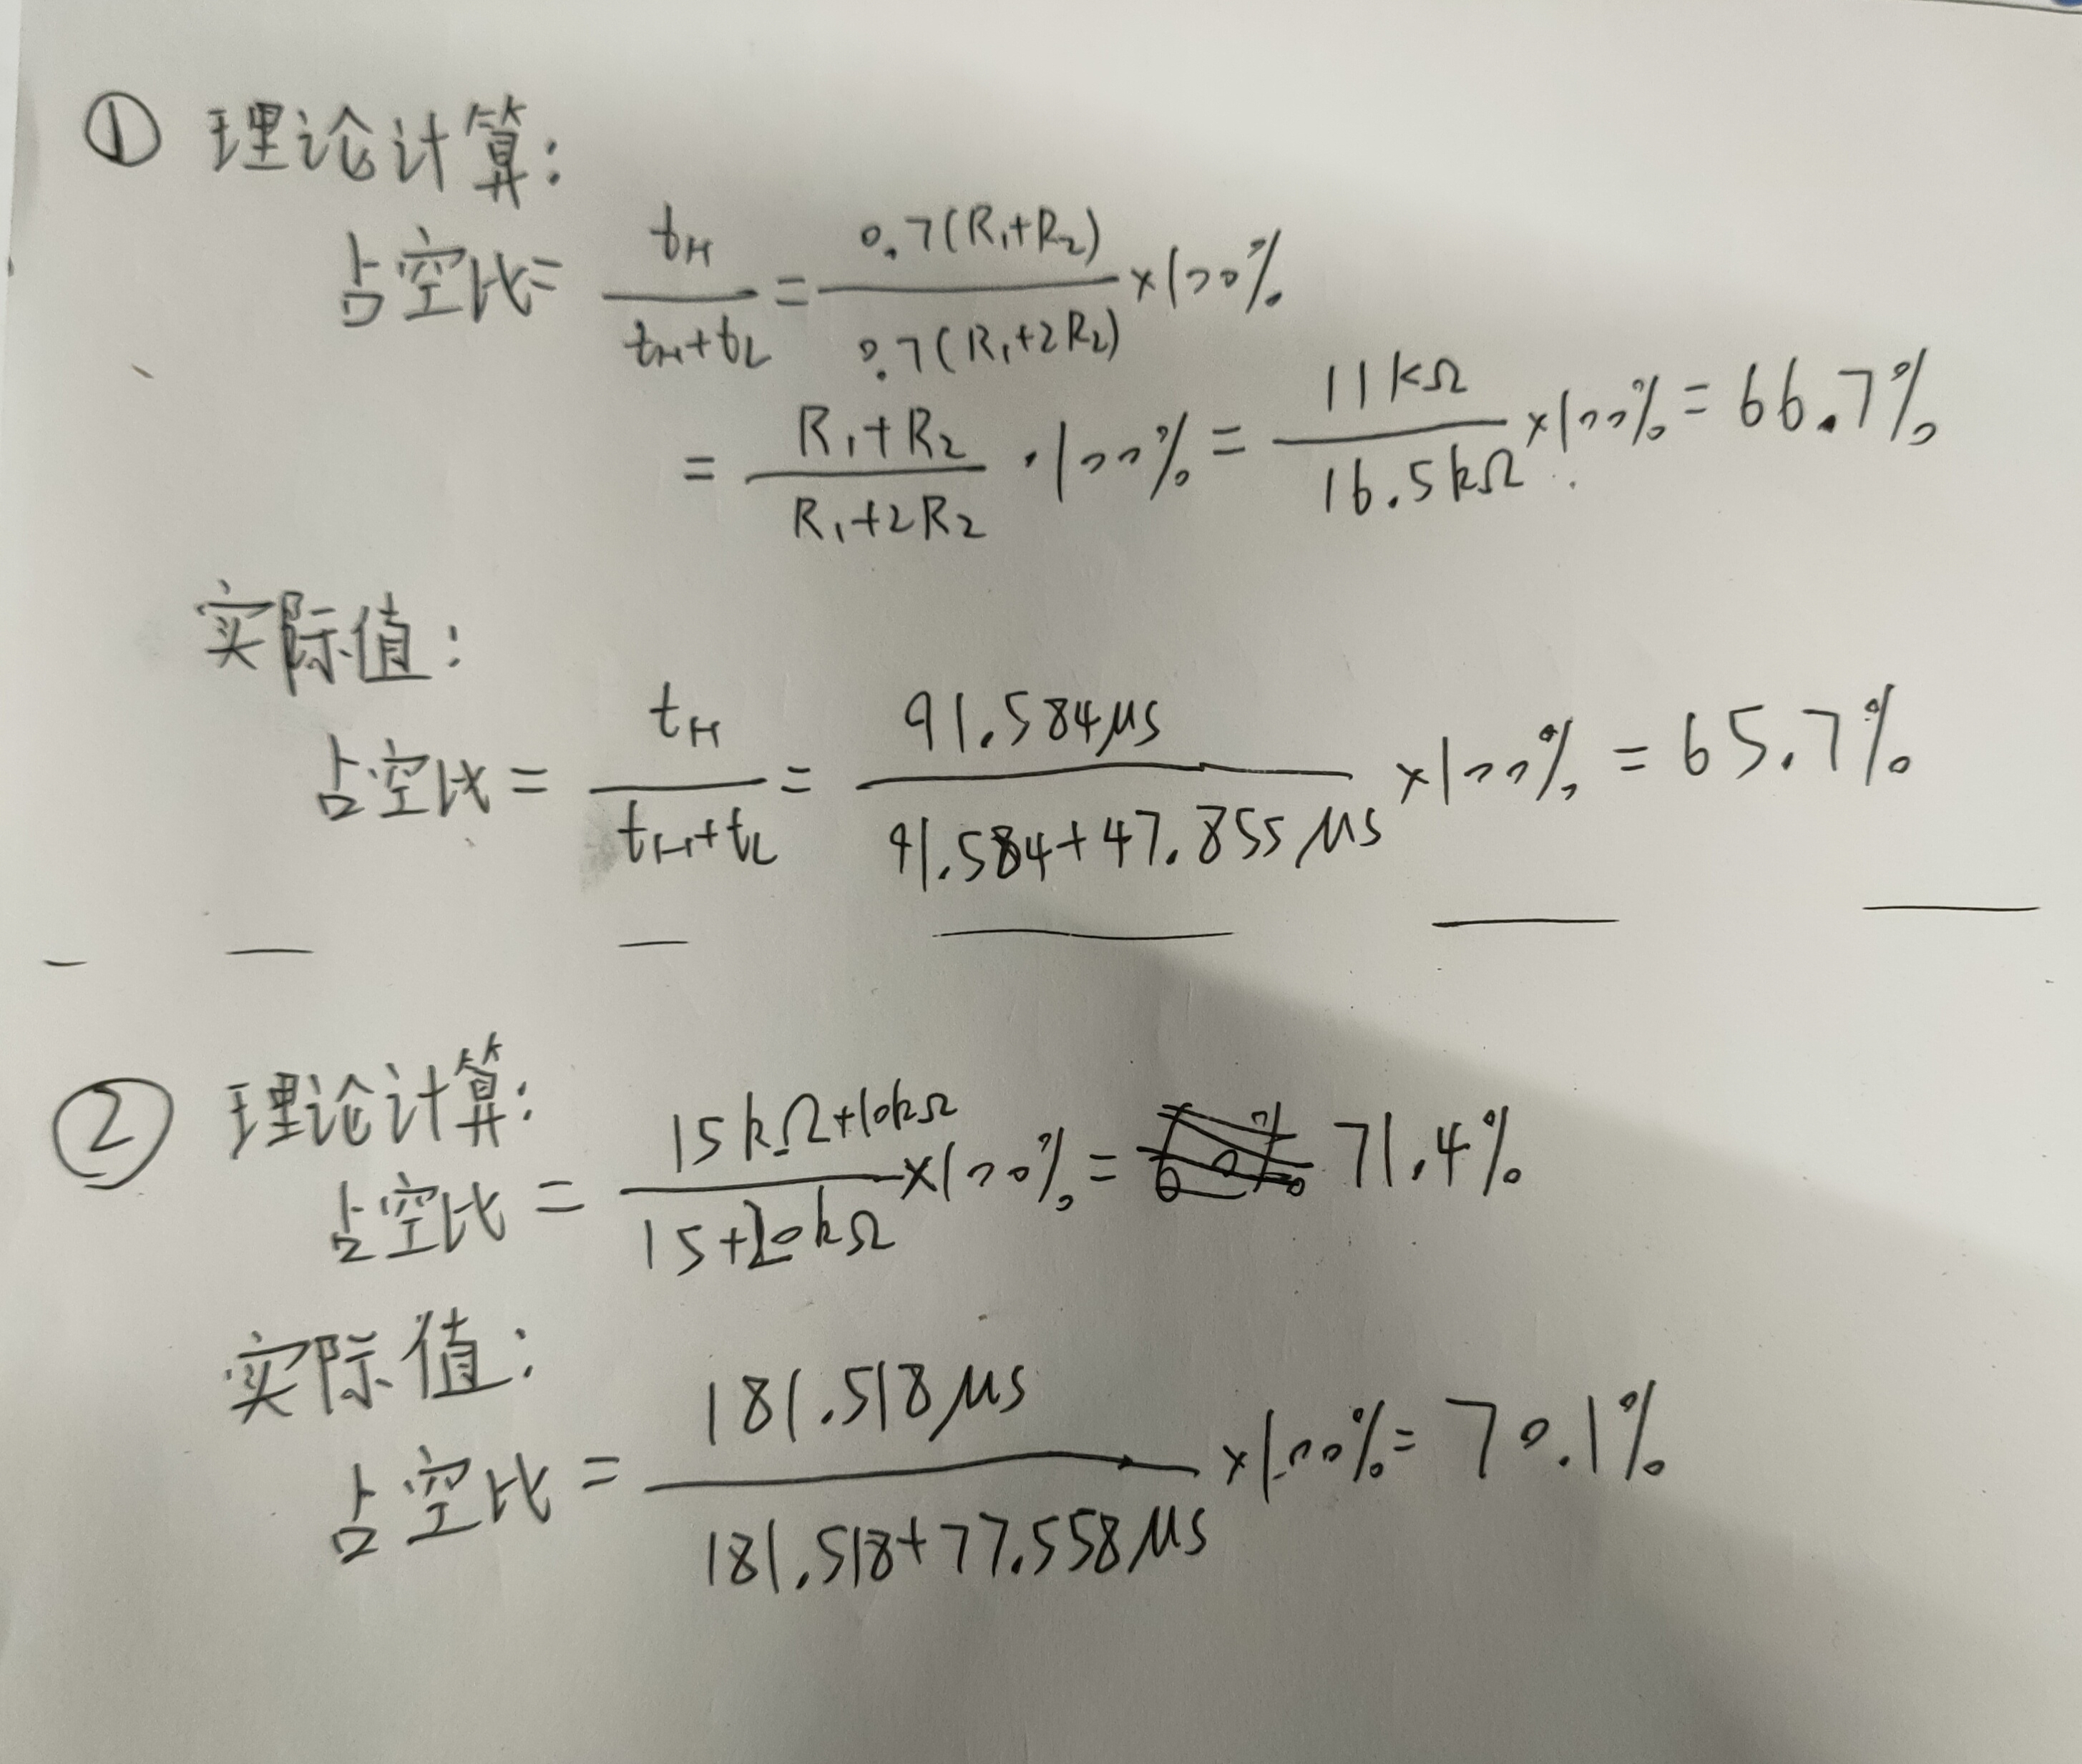 ① 理论计算:
占空比= tH/(tH+tL) = 0.7(R1+R2)/0.7(R1+2R2) ×100%
= (R1+R2)/(R1+2R2) ·100% = 11kΩ/16.5kΩ ×100% = 66.7%
实际值:
占空比 = tH/(tH+tL) = 91.584μs/(91.584+47.855μs) ×100% = 65.7%
② 理论计算:
占空比 = (15kΩ+10kΩ)/(15+20kΩ) ×100% = 71.4%
实际值:
占空比 = 181.518μs/(181.518+77.558μs) ×100% = 70.1%